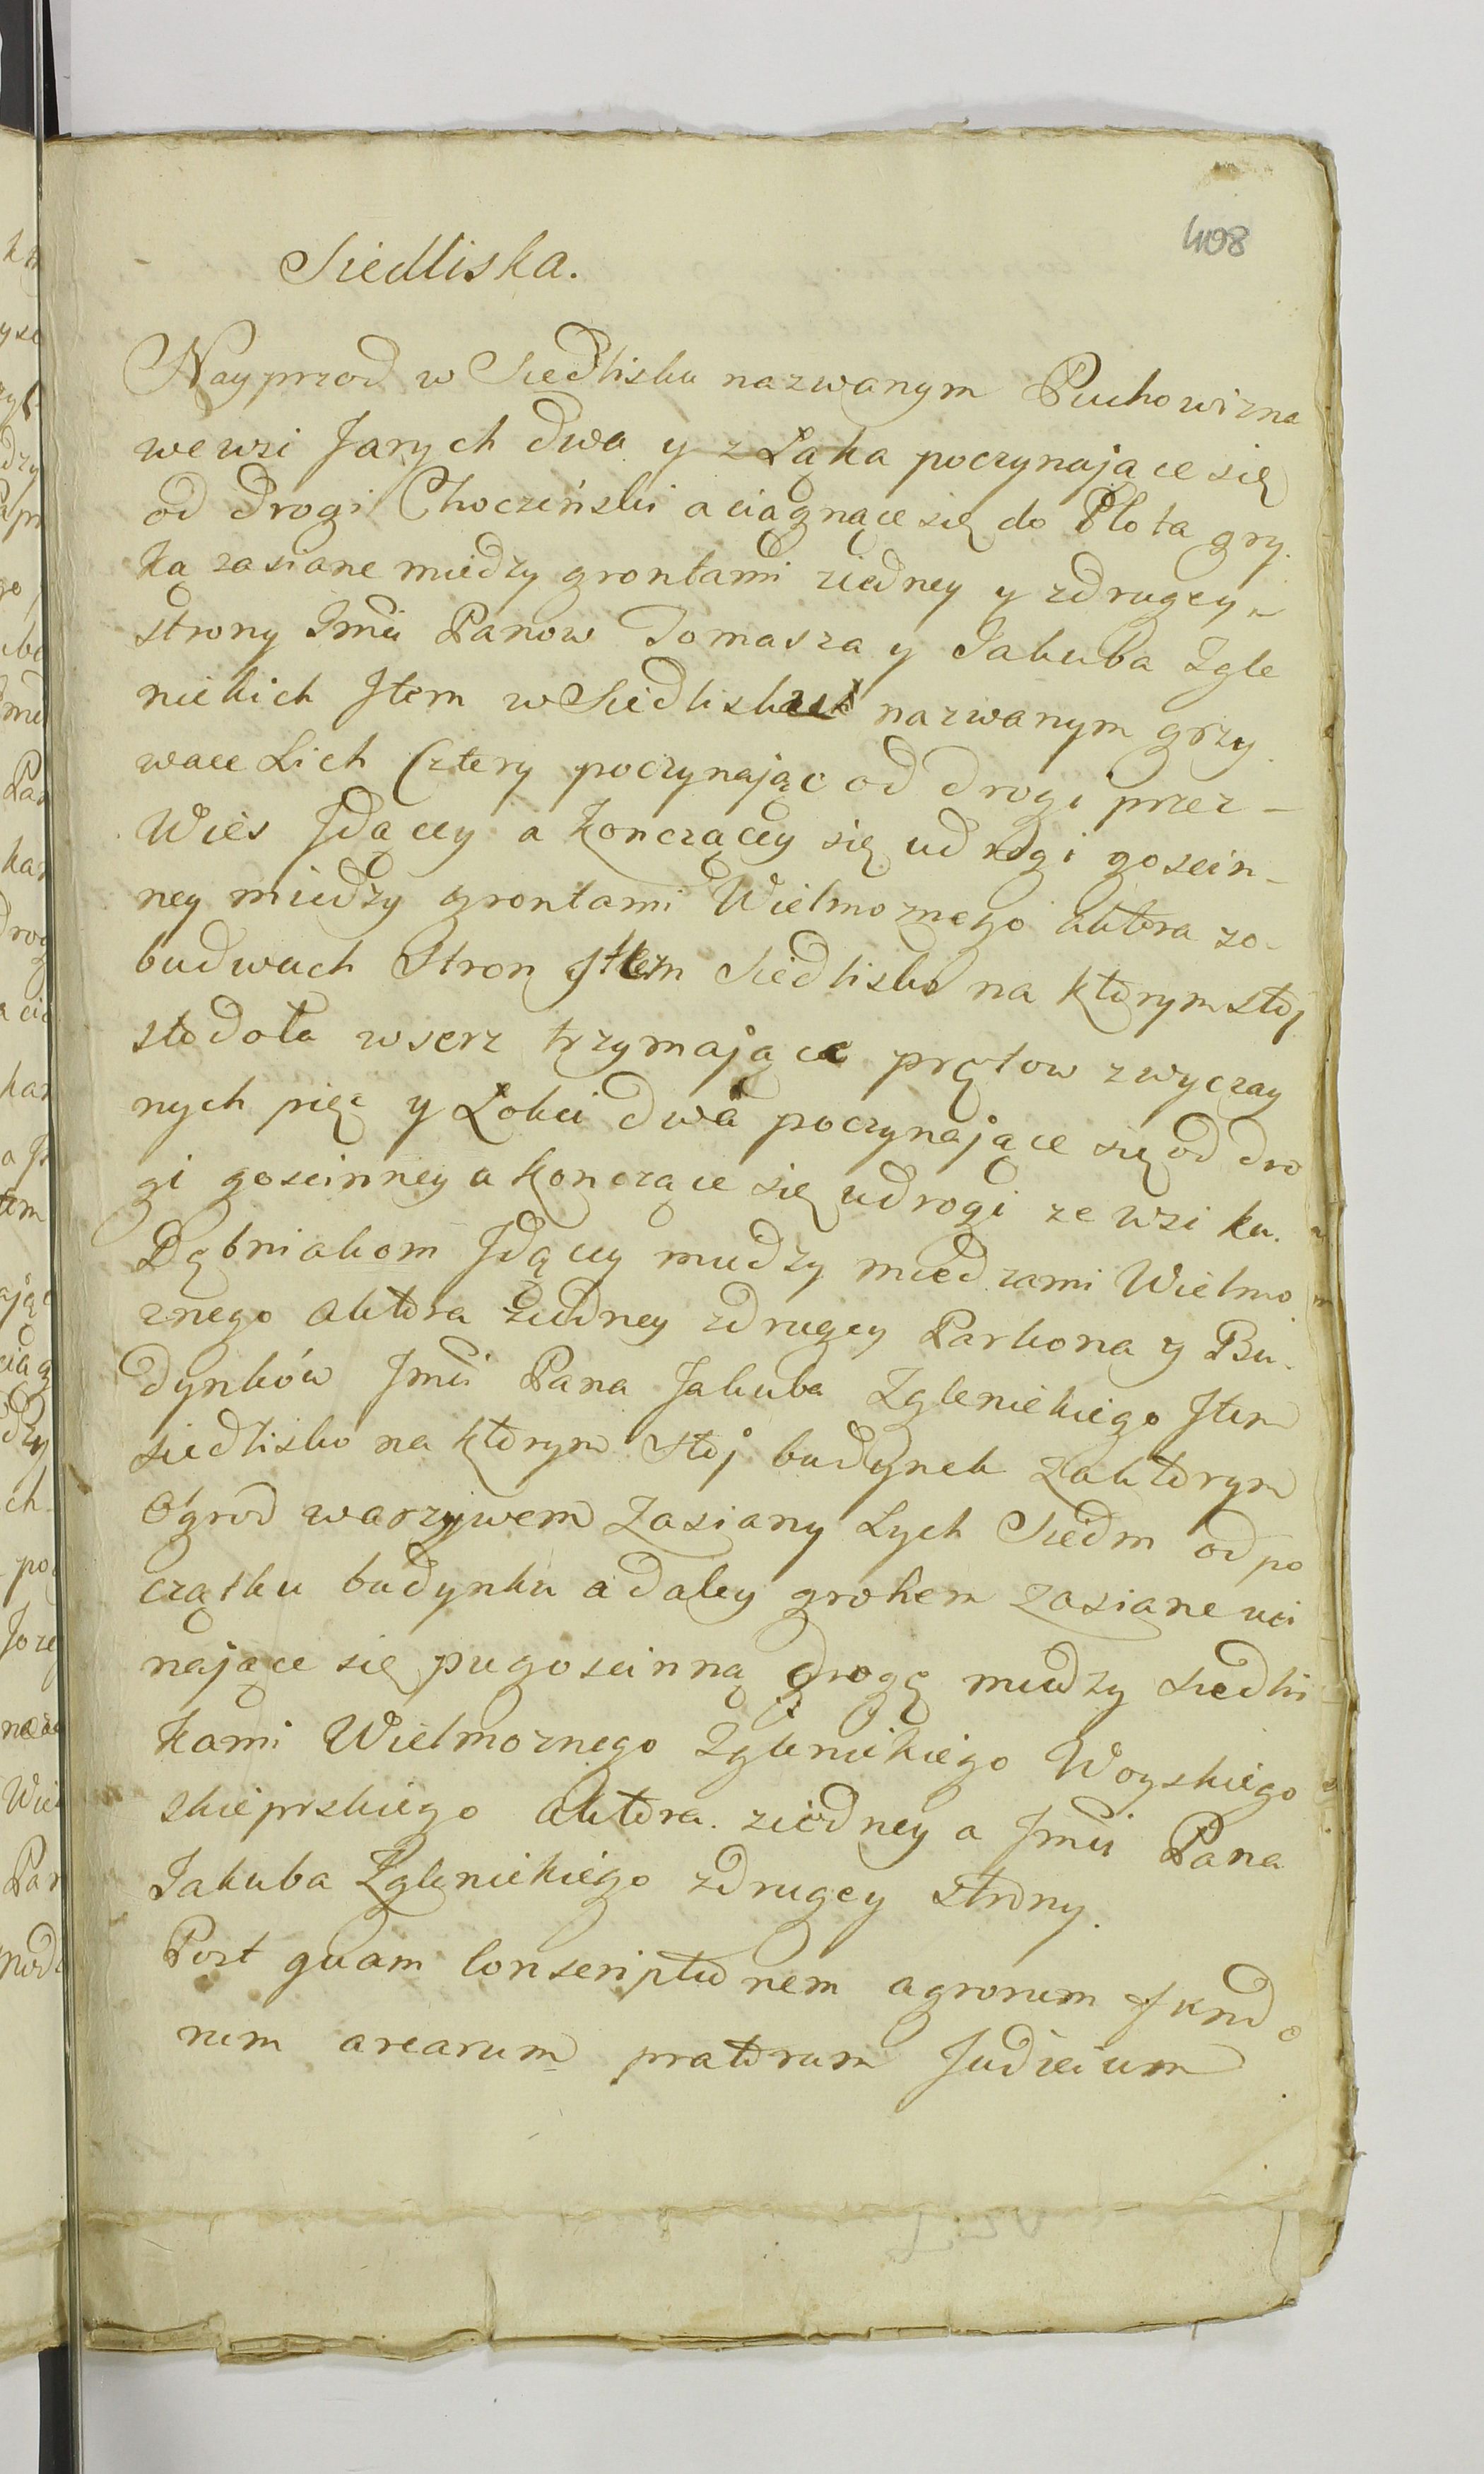 408
Siedliska.
Nayprzod w Siedlisku nazwanym Puchowizna
we wsi Jarych dwa y z Łąka poczynające się
od Drogi Choczeński a ciągnące się do Płota gry.
ką zasiane miedzy grontami ziedney y zdrugey
strony Jmci Panow Tomasza y Jakuba Zgle
nickich Jtem w Siedlisku nazwanym grzy
wacc Lich Cztery poczynając od drogi przez –
Wies Jdącey a konczącey się udrogi goscin –
ney miedzy grontami Wielmoznego Aktora zo-
budwuch Stron Jtem Siedlisko na ktorym stoj
stodoła wserz trzymające prętow zwyczay
nych pięc y Łokci dwa poczynające się od dro
gi goscinney a konczące się udrogi ze wsi ku.
Dębniakom Jdącey miedzy miedzami Wielmo
znego Aktora ziedney zdrugey Parkona y Bu.
dynków Jmci Pana Jakuba Zglenickiego Jtem
siedlisko na ktorym stoj budynek zaktorym
Ogrod warzywem zasiany Lych Siedm od po
czątku budynku a daley grohem zasiane uci
nające się pugoscinną drogę miedzy siedli
kami Wielmoznego Zglenickiego Woyskiego
skieprskiego Aktora. ziedney a Jmci Pana
Jakuba Zglenickiego zdrugey strony.
Post quam Conscriptionem agrorum fundo
rum arearum pratorum Judicium